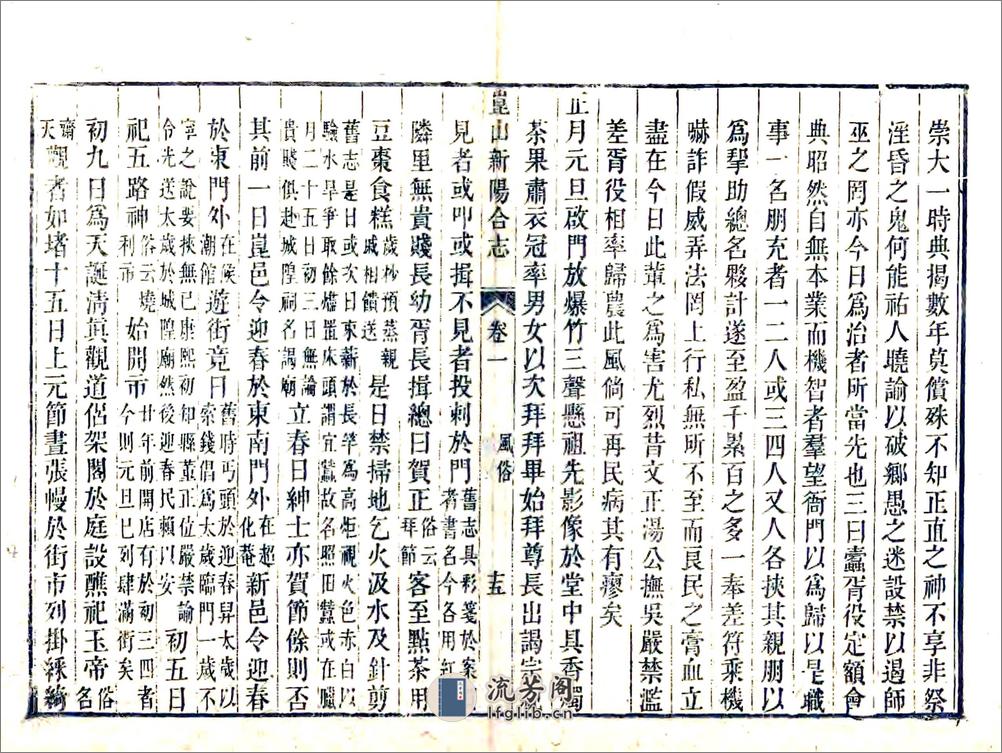 崇大一時典揭數年莫償殊不知正直之神不享非祭
淫昏之鬼何能祐人曉諭以破鄉愚之迷設禁以遏師
巫之罔亦今日為治者所當先也三曰蠹胥役定額會
典昭然自無本業而機智者羣望衙門以為歸以是職
事一名朋充者一二人或三四人又人各挾其親朋以
為拏助總名夥計遂至盈千累百之多一奉差符乘機
嚇詐假威弄法罔上行私無所不至而良民之膏血立
盡在今日此輩之為害尤烈昔文正湯公撫吳嚴禁濫
差胥役相率歸農此風倘可再民病其有瘳矣
正月元旦啟門放爆竹三聲懸祖先影像於堂中具香燭
茶果肅衣冠率男女以次拜拜畢始拜尊長出謁宗
崑山新陽合志 卷一 風俗 十五
見者或叩或揖不見者投刺於門舊志具彩箋於案者書名今各用紅
隣里無貴賤長幼胥長揖總曰賀正俗云拜節客至點茶用
豆棗食糕歲杪預蒸親戚相饋送是日禁掃地乞火汲水及針剪
舊志是日或次日束薪於長竿為高炬視火色赤白以
驗水旱爭取餘燼置床頭謂宜蠶故名照田蠶或在臘
月二十五日初三日無論
貴賤俱赴城隍祠名謁廟立春日紳士亦賀節餘則否
其前一日崑邑令迎春於東南門外在超化菴新邑令迎春
於東門外在候潮館遊街竟日舊時丐頭於迎春昇太歲以索錢倡為太歲臨門一歲不
寧之說要挾無已康熙初知縣董正位嚴禁諭
令光送太歲於城隍廟然後迎春民賴以安初五日
祀五路神俗云燒利市始開市廿年前開店有於初三四者今則元旦已列肆滿街矣
初九日為天誕清真觀道侶架閣於庭設醮祀玉帝俗名
齋天觀者如堵十五日上元節晝張幔於街市列掛綵綺
流芳阁
lfglib.cn